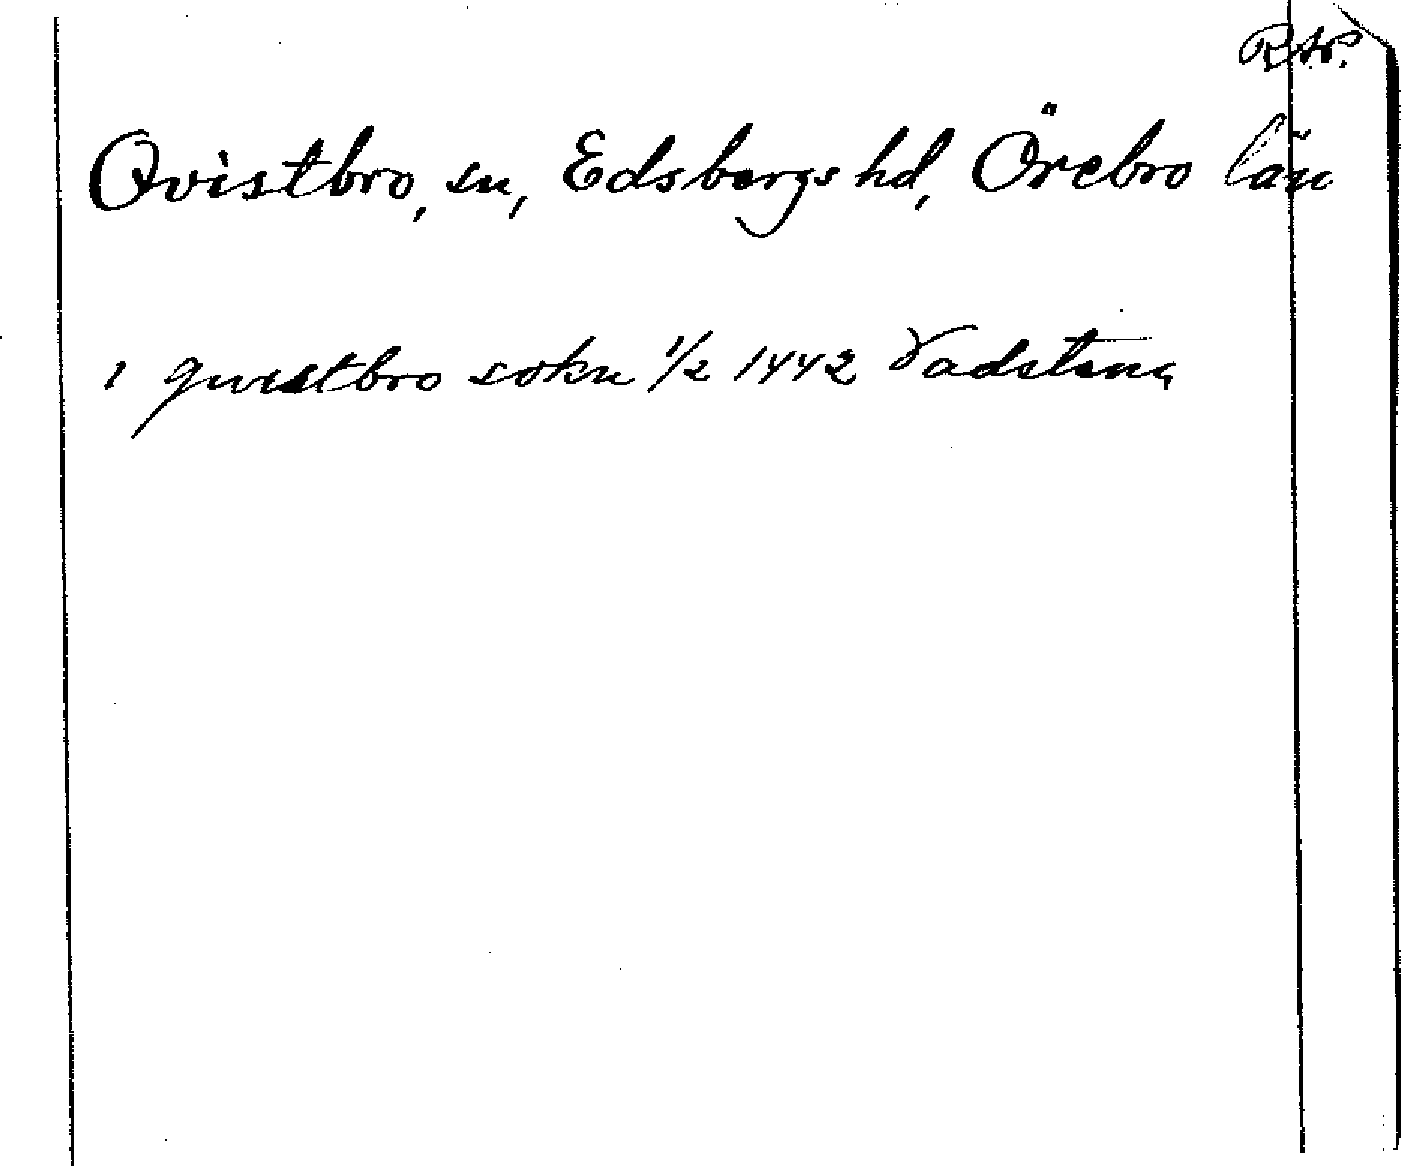 RAP.
Qvistbro, sn, Edsbergs hd, Örebro län
1 qwistbro sokn 1/2 1442 Vadstena